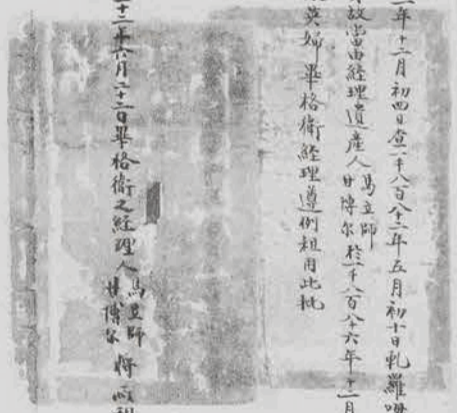 二年十二月初四日查一千八百八十二年五月初十日軋羅
故當由經理遺產人馬立師甘博尔於一千八百八十六年十二月
英婦畢格衛經理遵例租用此批
十二年六月二十二日畢格衛之經理人馬立師甘博尔將